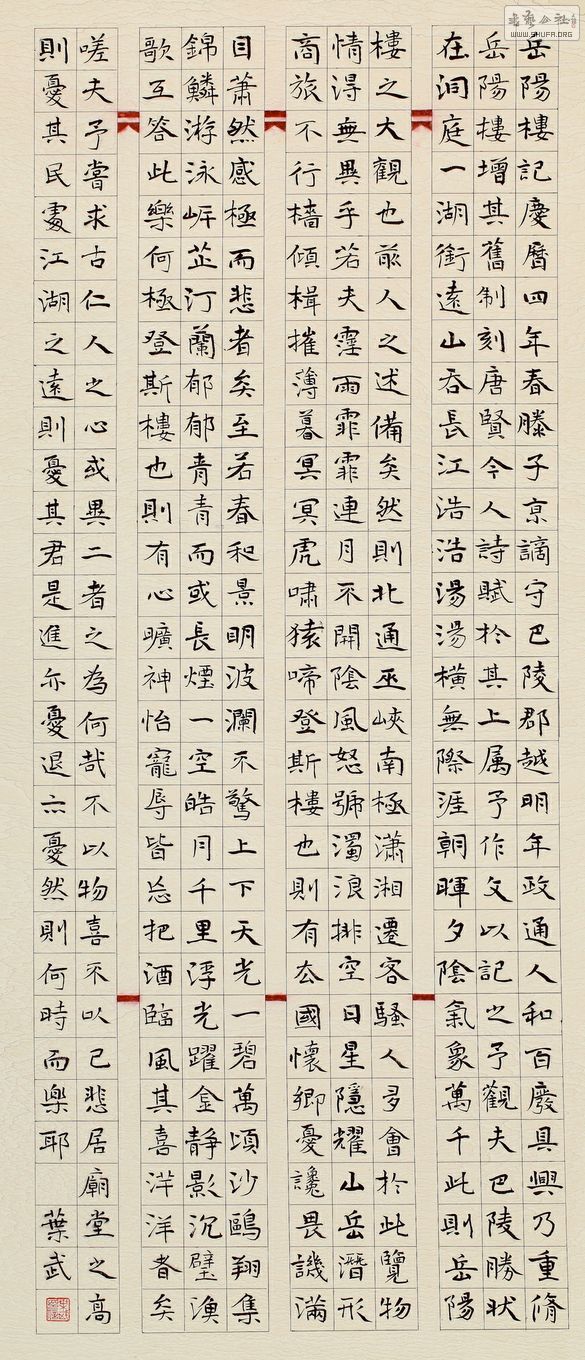 岳陽樓記慶曆四年春滕子京謫守巴陵郡越明年政通人和百廢具興乃重脩
岳陽樓增其舊制刻唐賢今人詩賦於其上属予作文以記之予觀夫巴陵勝狀
在洞庭一湖銜遠山吞長江浩浩湯湯橫無際涯朝暉夕陰氣象萬千此則岳陽
樓之大觀也前人之述備矣然則北通巫峽南極瀟湘遷客騷人多會於此覽物
情得無異乎若夫霪雨霏霏連月不開陰風怒號濁浪排空日星隱耀山岳潛形
商旅不行檣傾楫摧薄暮冥冥虎嘯猿啼登斯樓也則有去國懷鄉憂讒畏譏滿
目蕭然感極而悲者矣至若春和景明波瀾不驚上下天光一碧萬頃沙鷗翔集
錦鱗游泳岸芷汀蘭郁郁青青而或長煙一空皓月千里浮光躍金靜影沉璧漁
歌互答此樂何極登斯樓也則有心曠神怡寵辱皆忘把酒臨風其喜洋洋者矣
嗟夫予嘗求古仁人之心或異二者之為何哉不以物喜不以己悲居廟堂之高
則憂其民處江湖之遠則憂其君是進亦憂退亦憂然則何時而樂耶 葉武
书艺公社
WWW.SHUFA.ORG